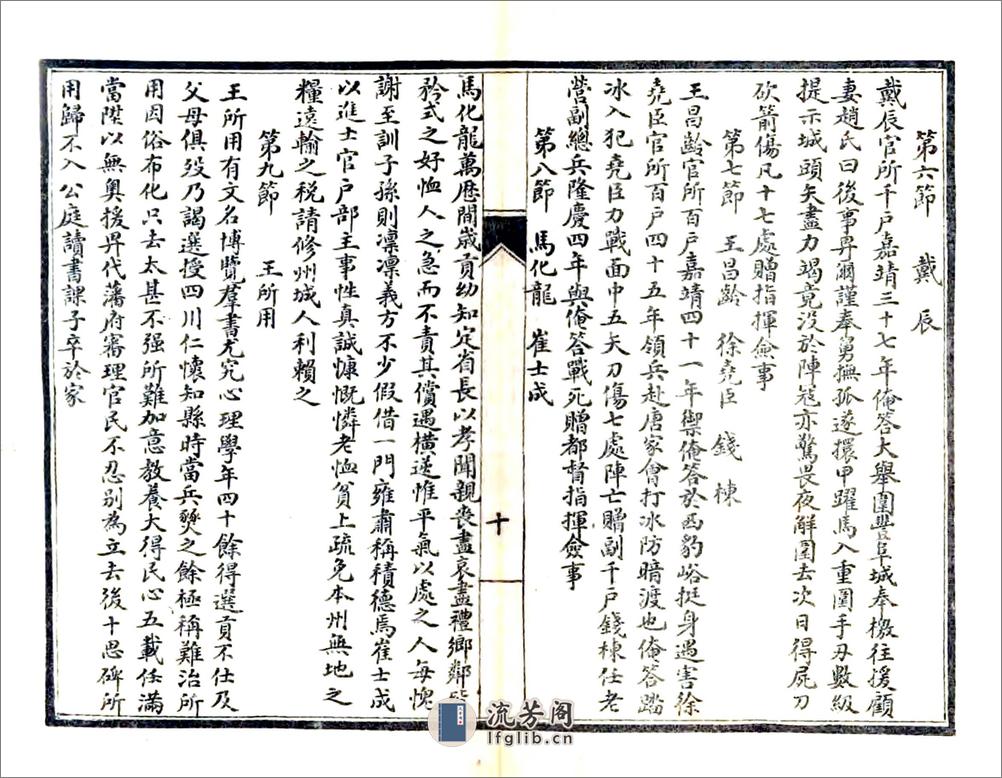 第六節　戴　辰
戴辰官所千戶嘉靖三十七年俺答大舉圍豐阜城奉檄往援顧
妻趙氏曰後事畀爾謹奉舅撫孤遂擐甲躍馬入重圍手刃數級
提示城頭矢盡力竭竟沒於陣寇亦驚畏夜解圍去次日得屍刀
砍箭傷凡十七處贈指揮僉事
第七節　王昌齡　徐堯臣　錢棟
王昌齡官所百戶嘉靖四十一年禦俺答於西豹峪挺身遇害徐
堯臣官所百戶四十五年領兵赴唐家會打冰防暗渡也俺答踏
冰入犯堯臣力戰面中五矢刀傷七處陣亡贈副千戶錢棟任老
營副總兵隆慶四年與俺答戰死贈都督指揮僉事
第八節　馬化龍　崔士成
十
馬化龍萬歷間歲貢幼知定省長以孝聞親喪盡哀盡禮鄉鄰皆
矜式之好恤人之急而不責其償遇橫逆惟平氣以處之人每愧
謝至訓子孫則凛凛義方不少假借一門雍肅稱積德焉崔士成
以進士官戶部主事性真誠慷慨憐老恤貧上疏免本州無地之
糧遠輸之税請修州城人利賴之
第九節　王所用
王所用有文名博覽羣書尤究心理學年四十餘得選貢不仕及
父母俱歿乃謁選授四川仁懷知縣時當兵燹之餘極稱難治所
用因俗布化只去太甚不强所難加意教養大得民心五載任滿
當陞以無奥援畀代藩府審理官民不忍别為立去後十思碑所
用歸不入公庭讀書課子卒於家
流芳阁
lfglib.cn